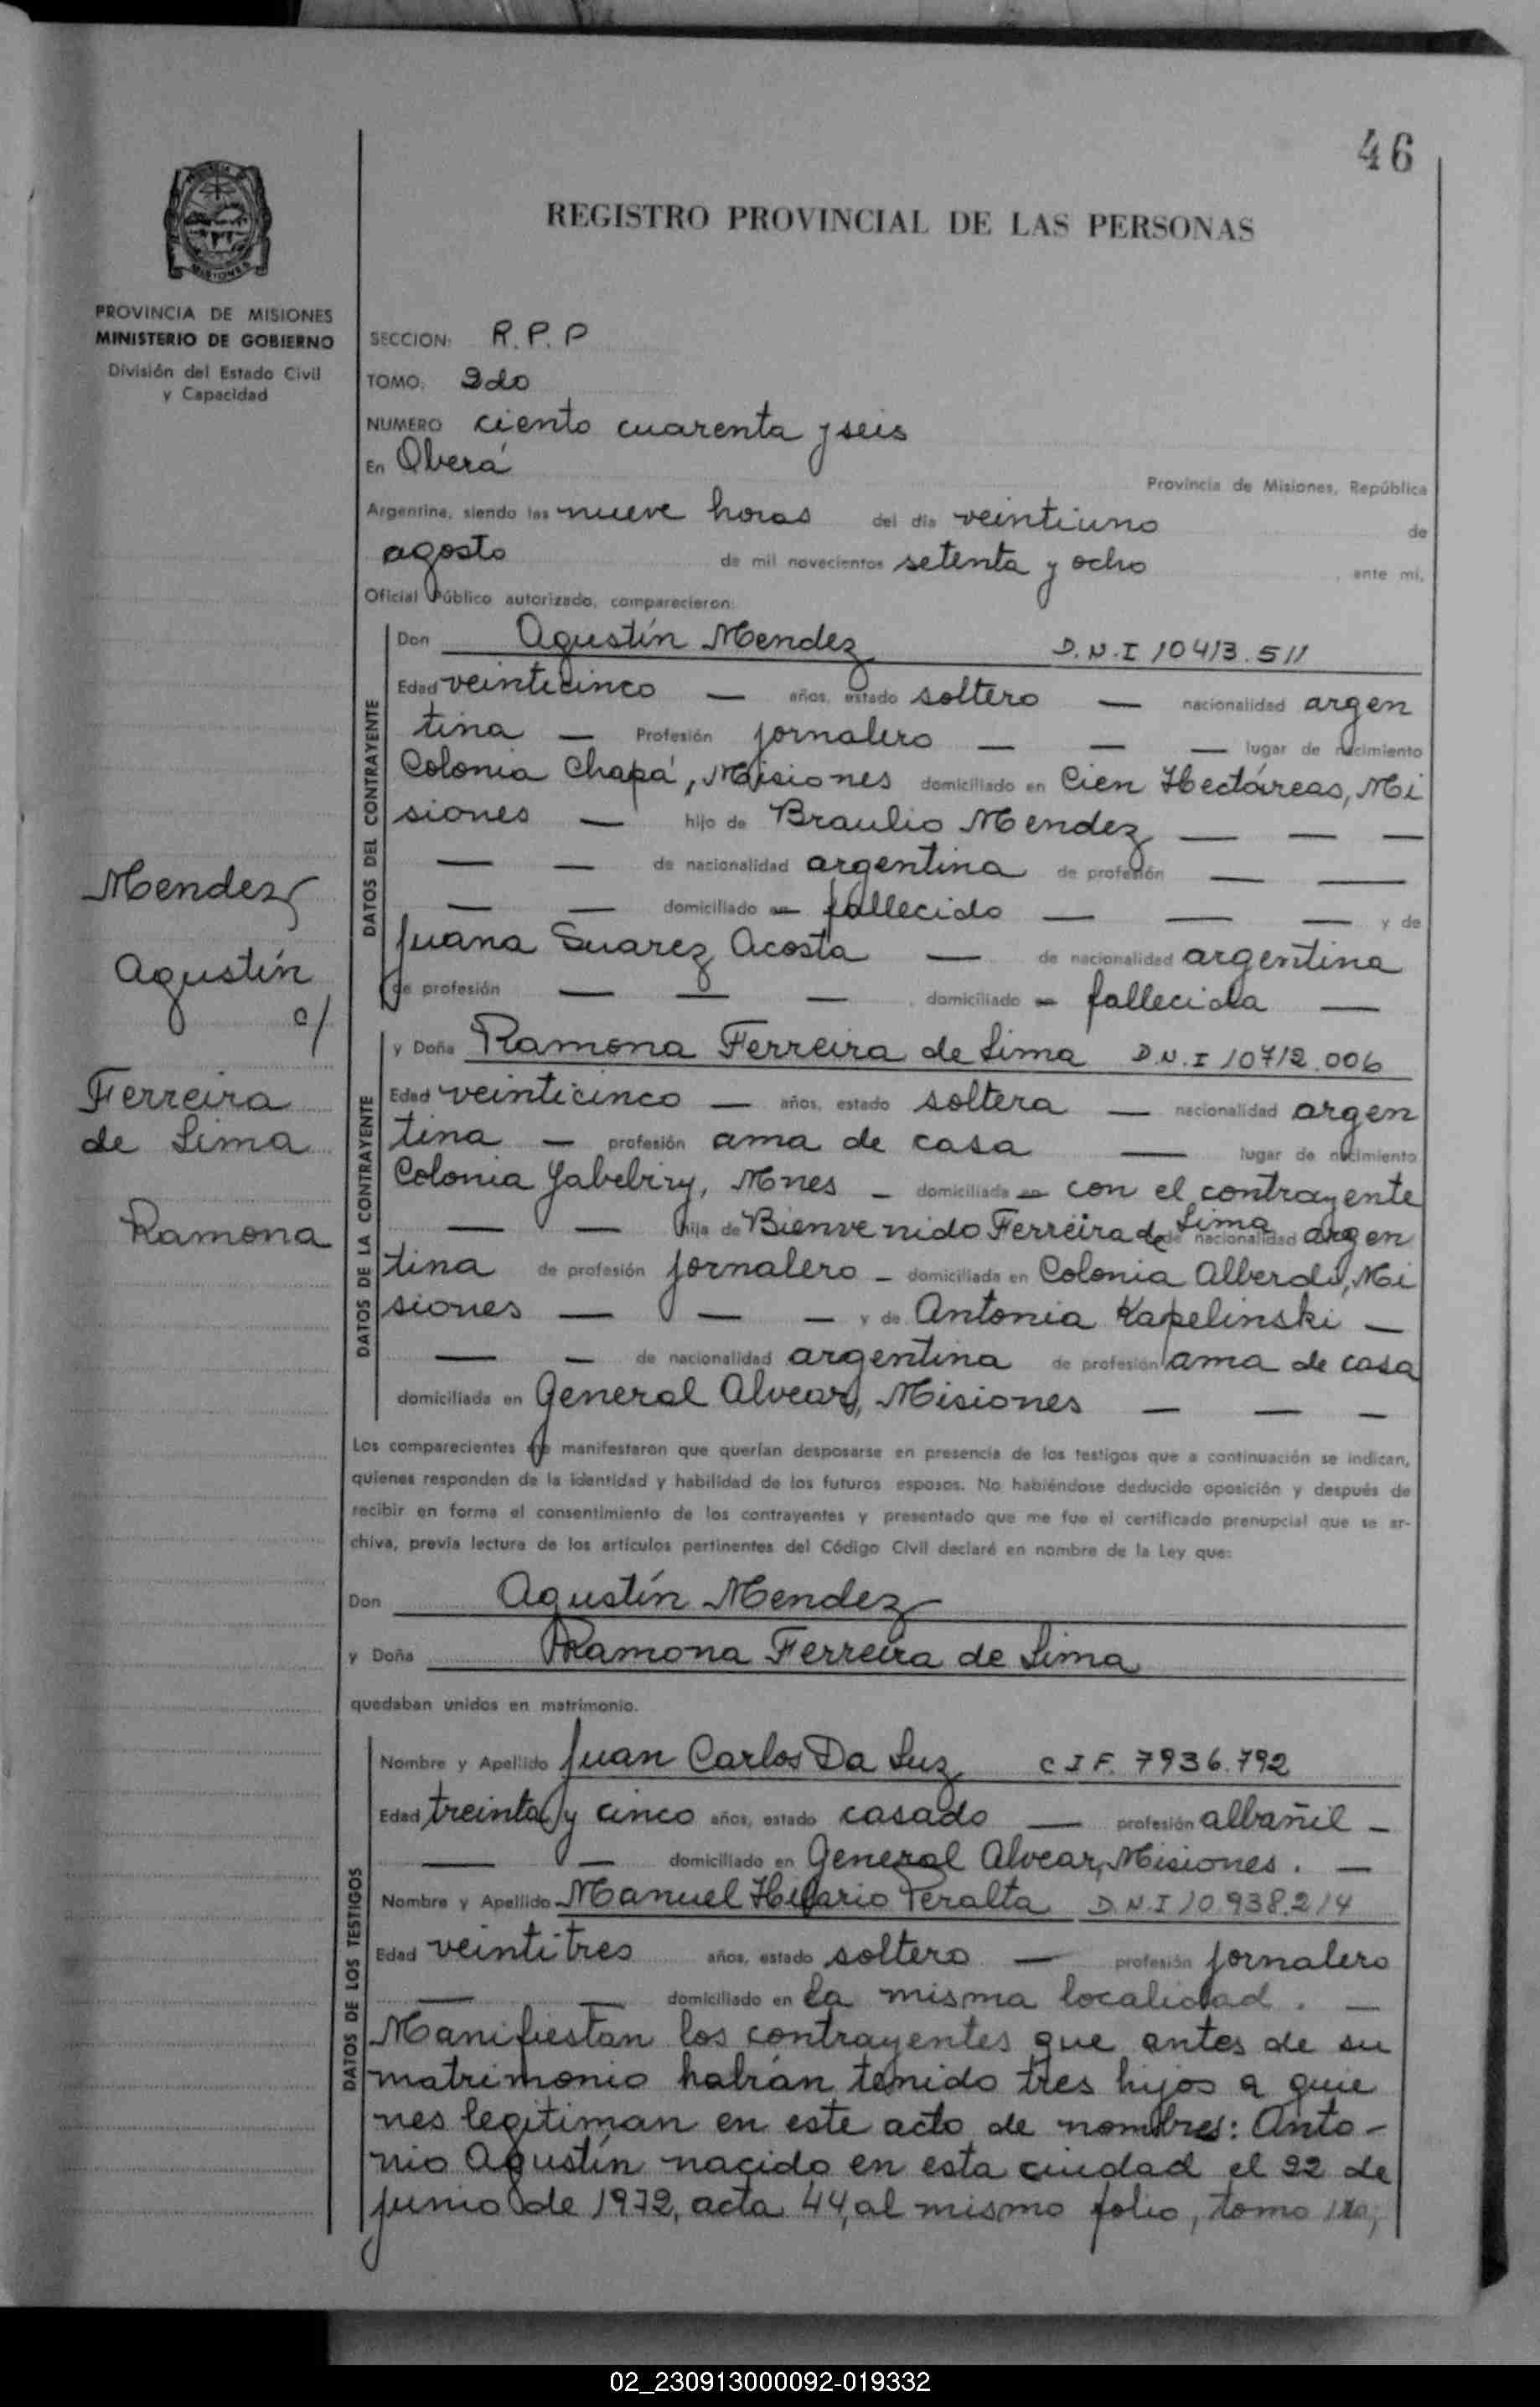 46
REGISTRO PROVINCIAL DE LAS PERSONAS
MISIONES
PROVINCIA DE MISIONES
MINISTERIO DE GOBIERNO
División del Estado Civil
y Capacidad
SECCION: R.P.P
TOMO: 2do
NUMERO ciento cuarenta y seis
En Oberá
Provincia de Misiones, República
Argentina, siendo las nueve horas del día veintiuno de
agosto de mil novecientos setenta y ocho, ante mi,
Oficial Público autorizado, comparecieron:
DATOS DEL CONTRAYENTE
Don Agustín Mendez D.N.I 10413.511
Edad veinticinco — años, estado soltero — nacionalidad argen
tina — Profesión jornalero — — — lugar de nacimiento
Colonia Chapá, Misiones domiciliado en Cien Hectáreas, Mi
siones — hijo de Braulio Mendez — — —
— — de nacionalidad argentina de profesión — —
— — domiciliado en fallecido — — — y de
Juana Suarez Acosta — de nacionalidad argentina
de profesión — — —, domiciliado — fallecida —
Mendez
Agustín
c/
Ferreira
de Lima
Ramona
DATOS DE LA CONTRAYENTE
y Doña Ramona Ferreira de Lima D.N.I 10712.006
Edad veinticinco — años, estado soltera — nacionalidad argen
tina — profesión ama de casa — lugar de nacimiento
Colonia Yabebiry, Mnes — domiciliada en con el contrayente
— — hija de Bienvenido Ferreira de Lima de nacionalidad argen
tina de profesión jornalero — domiciliada en Colonia Alberdi, Mi
siones — — — y de Antonia Kapelinski —
— — de nacionalidad argentina de profesión ama de casa
domiciliada en General Alvear, Misiones — — —
Los comparecientes me manifestaron que querían desposarse en presencia de los testigos que a continuación se indican,
quienes responden de la identidad y habilidad de los futuros esposos. No habiéndose deducido oposición y después de
recibir en forma el consentimiento de los contrayentes y presentado que me fue el certificado prenupcial que se ar-
chiva, previa lectura de los artículos pertinentes del Código Civil declaré en nombre de la Ley que:
Don Agustín Mendez
y Doña Ramona Ferreira de Lima
quedaban unidos en matrimonio.
DATOS DE LOS TESTIGOS
Nombre y Apellido Juan Carlos Da Luz C I F. 7936.792
Edad treinta y cinco años, estado casado — profesión albañil —
— — domiciliado en General Alvear, Misiones. —
Nombre y Apellido Manuel Hilario Peralta D.N.I 10.938.214
Edad veintitres años, estado soltero — profesión jornalero
— — domiciliado en la misma localidad. —
Manifiestan los contrayentes que antes de su
matrimonio habían tenido tres hijos a quie
nes legitiman en este acto de nombres: Anto-
nio Agustín nacido en esta ciudad el 22 de
junio de 1972, acta 44, al mismo folio, tomo 1ro;
02_230913000092-019332